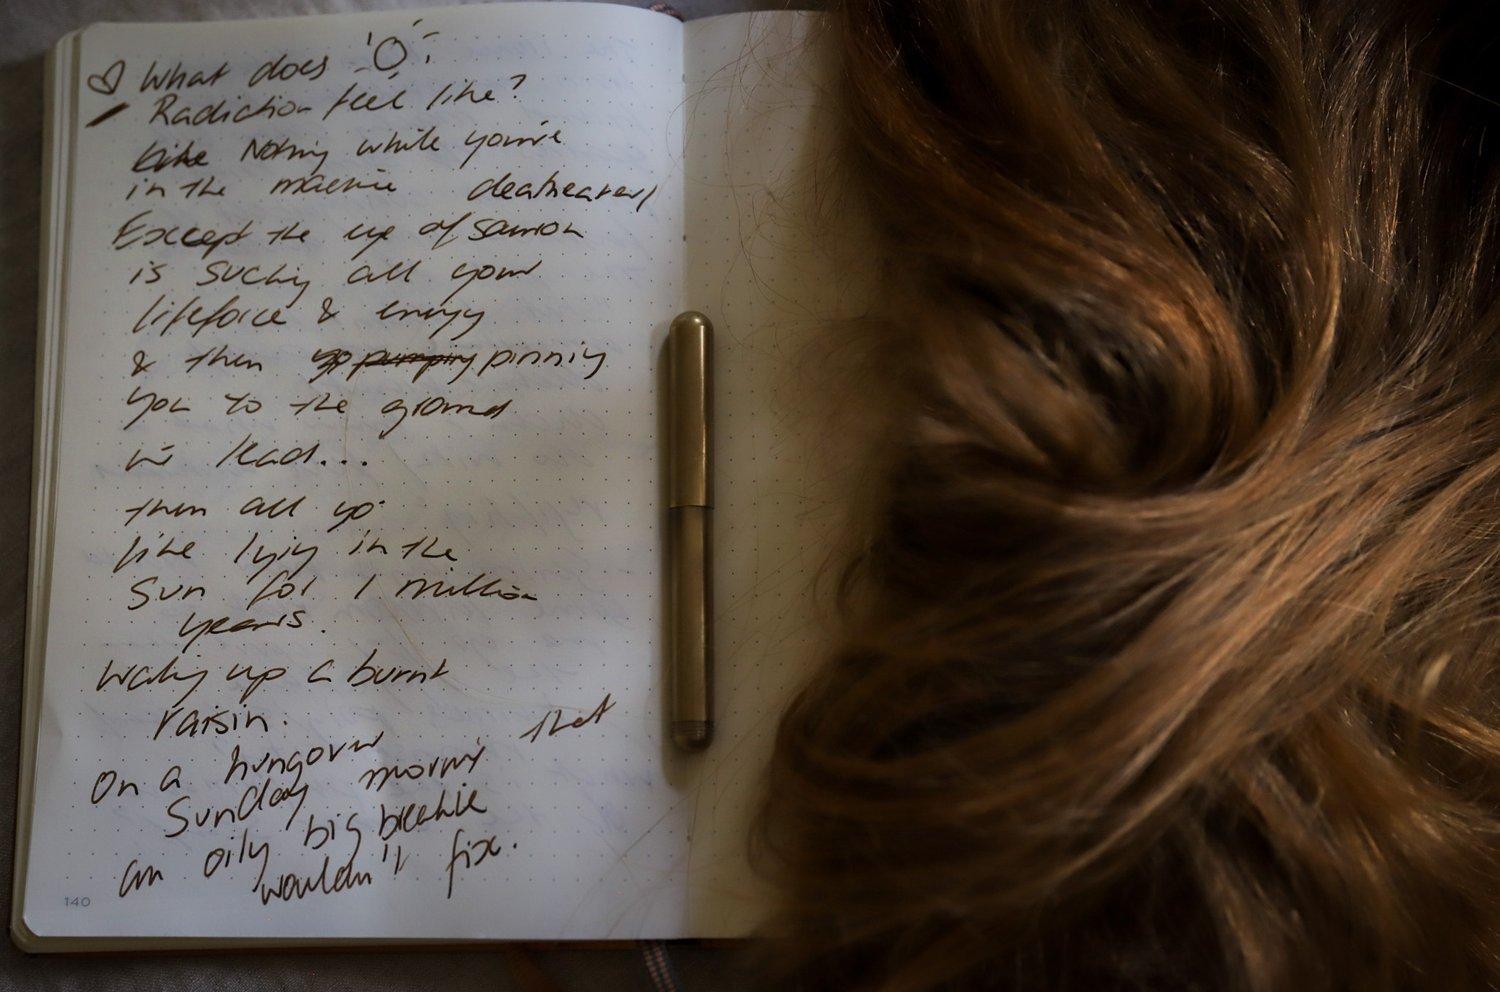 What does
Radiation feel like?
Like Nothing while you're
in the machine
Except the
is sucking all your
lifeforce & energy
& then pumping pinning
you to the ground
in lead...
then all up
like lying in the
Sun for 1 million
years.
Waking up a burnt
raisin.
On a hungover
Sunday morning that
an oily big breakie
wouldn't fix.
140